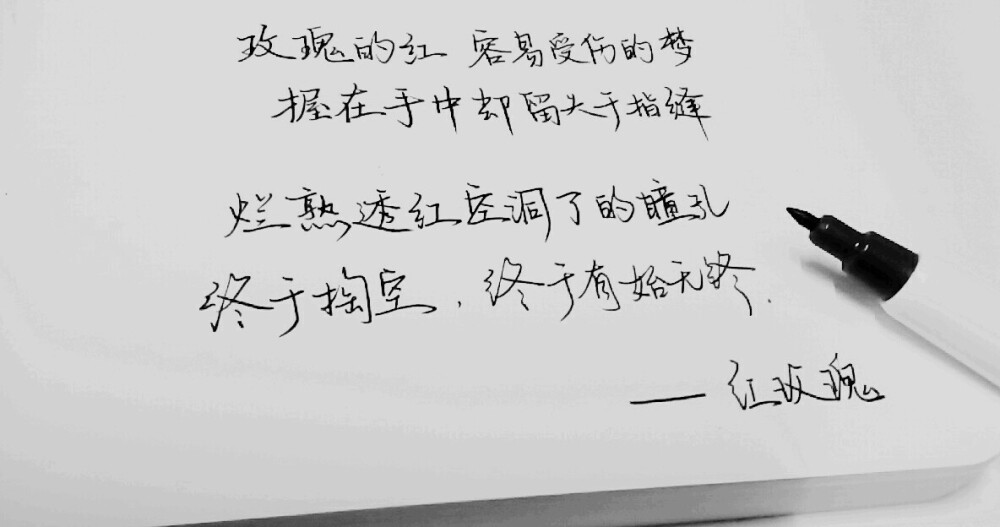 玫瑰的红 容易受伤的梦
握在手中却留失于指缝
烂熟透红空洞了的瞳孔
终于掏空,终于有始无终.
——红玫瑰